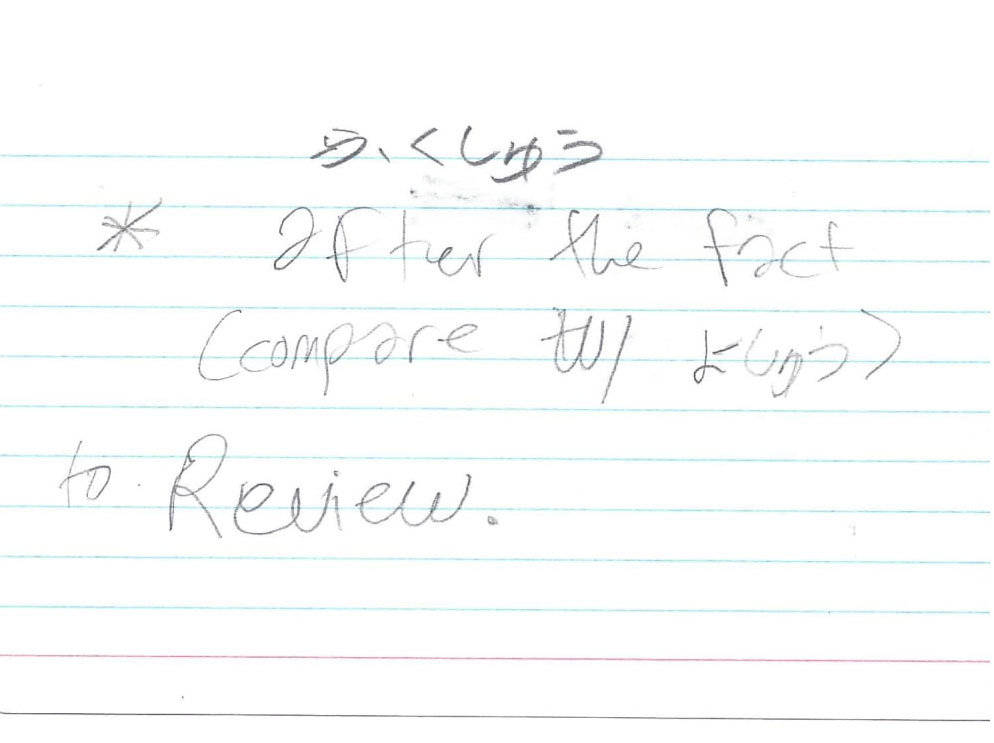 ふくしゅう
* after the fact
(compare w/ よしゅう)
to Review.